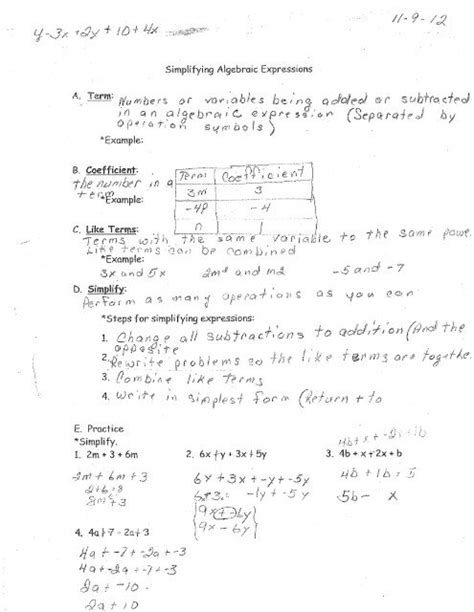 y-3x+2y+10+4x
11-9-12
Simplifying Algebraic Expressions
A. Term: Numbers or variables being added or subtracted
in an algebraic expression (Separated by
operation symbols)
*Example:
B. Coefficient:
the number in a
term
*Example:
Term Coefficient
3m 3
-4p -4
n 1
C. Like Terms:
Terms with the same variable to the same power
Like terms can be combined
*Example:
3x and 5x 2m² and m2 -5 and -7
D. Simplify:
Perform as many operations as you can
*Steps for simplifying expressions:
1. Change all subtractions to addition (And the
opposite
2. Rewrite problems so the like terms are togethe
3. Combine like terms
4. Write in simplest form (Return + to
E. Practice
*Simplify.
1. 2m + 3 + 6m 2. 6x + y + 3x + 5y 3. 4b + x + 2x + b
2m + 6m + 3
2+6=8
8m + 3
6x + 3x + -y + -5y
-1y + -5y
9x + -6y
9x - 6y
4b + x + -2x + 1b
4b + 1b = 5
5b - x
4. 4a + 7 - 2a + 3
4a + -7 + -2a + -3
4a + -2a + -7 + -3
2a + -10
2a + 10